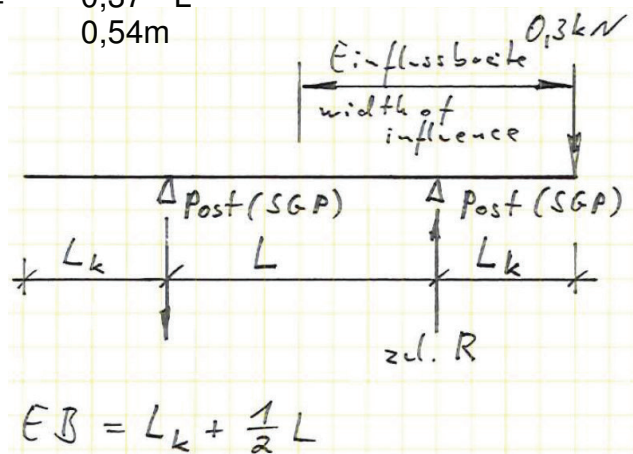 0,37 L
0,54m
0,3kN
Einflussbreite
width of
influence
Post (SGP) Post (SGP)
Lk L Lk
zul. R
EB = Lk + 1/2 L